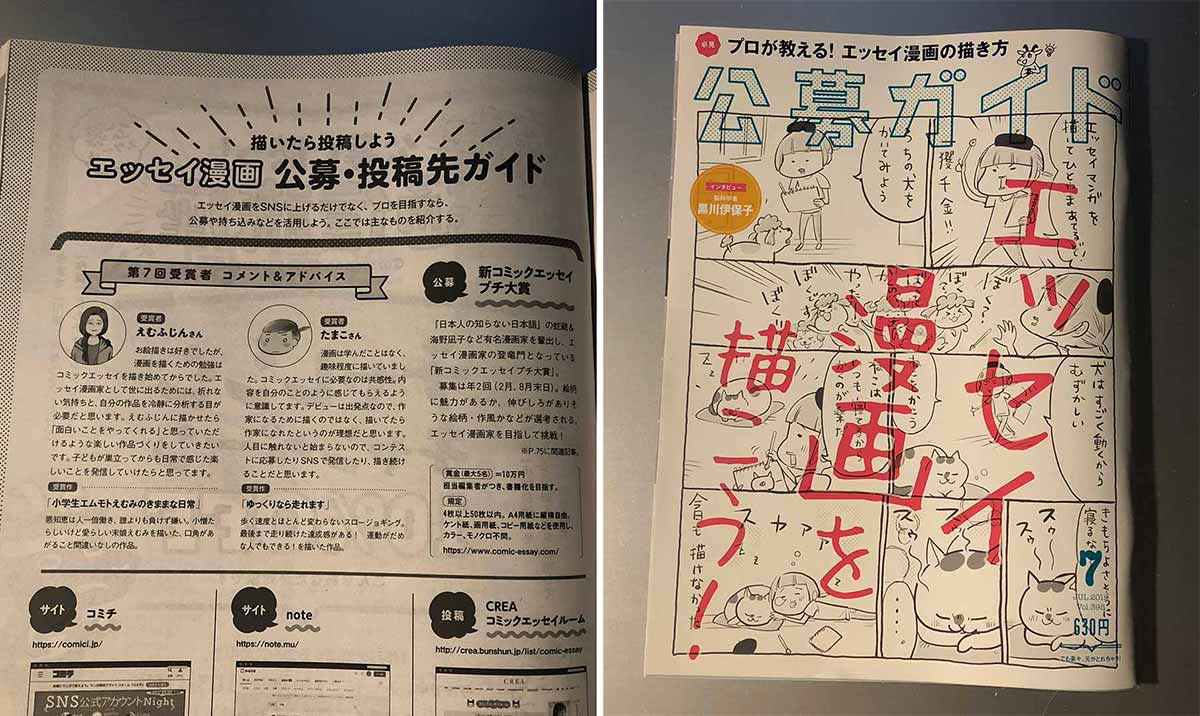 描いたら投稿しよう
エッセイ漫画 公募・投稿先ガイド
エッセイ漫画をSNSに上げるだけでなく、プロを目指すなら、
公募や持ち込みなどを活用しよう。ここでは主なものを紹介する。
第7回受賞者 コメント&アドバイス
受賞者
えむふじんさん
お絵描きは好きでしたが、
漫画を描くための勉強は
コミックエッセイを描き始めてからでした。エ
ッセイ漫画家として世に出るためには、折れな
い気持ちと、自分の作品を冷静に分析する目が
必要だと思います。えむふじんに描かせたら
「面白いことをやってくれる」と思っていただ
けるような楽しい作品づくりをしていきたい
です。子どもが巣立ってからも日常で感じた楽
しいことを発信していけたらと思ってます。
受賞作
「小学生エムモトえむみのきままな日常」
感知恵は人一倍働き、誰よりも負けず嫌い。小憎た
らしいけど愛らしい末娘えむみを描いた、口角があ
がること間違いなしの作品。
受賞者
たまこさん
漫画は学んだことはなく、
趣味程度に描いていまし
た。コミックエッセイに必要なのは共感性。内
容を自分のことのように感じてもらえるよう
に意識してます。デビューは出発点なので、作
家になるために描くのではなく、描いてたら
作家になれたというのが理想だと思います。
人目に触れないと始まらないので、コンテス
トに応募したりSNSで発信したり、描き続け
ることだと思います。
受賞作
「ゆっくりなら走れます」
歩く速度とほとんど変わらないスロージョギング。
最後まで走り続けた達成感がある! 運動がだめ
な人でもできる!を描いた作品。
公募
新コミックエッセイ
プチ大賞
『日本人の知らない日本語』の蛇蔵&
海野凪子など有名漫画家を輩出し、エ
ッセイ漫画家の登竜門となっている
「新コミックエッセイプチ大賞」。
募集は年2回(2月、8月末日)。絵柄
に魅力があるか、伸びしろがありそ
うな絵柄・作風かなどが選考される。
エッセイ漫画家を目指して挑戦!
※P.75に関連記事。
賞金(最大5名)=10万円
担当編集者がつき、書籍化を目指す。
規定
4枚以上50枚以内。A4用紙に縦横自由。
ケント紙、画用紙、コピー用紙などを使用し、
カラー、モノクロ不問。
https://www.comic-essay.com/
サイト
コミチ
https://comici.jp/
コミチ
SNS公式アカウントNight
サイト
note
https://note.mu/
投稿
CREA
コミックエッセイルーム
http://crea.bunshun.jp/list/comic-essay
CREA
必見
プロが教える! エッセイ漫画の描き方
公募ガイド
インタビュー
脳科学者
黒川伊保子
エッセイマンガを
描いてひとやまあてるぞ!!
獲千金!!
うちの犬を
かいてみよう
エッセイ
漫画を
描こう!
犬はすごく動くから
むずかしい
きもちよさそうに
寝るな
スゥ
スゥ
スゥ
スゥ
スカァ
カァァ
今日も描けなかった
7
JUL 2019
Vol.395
630円
でも楽々、元がとれちゃう!